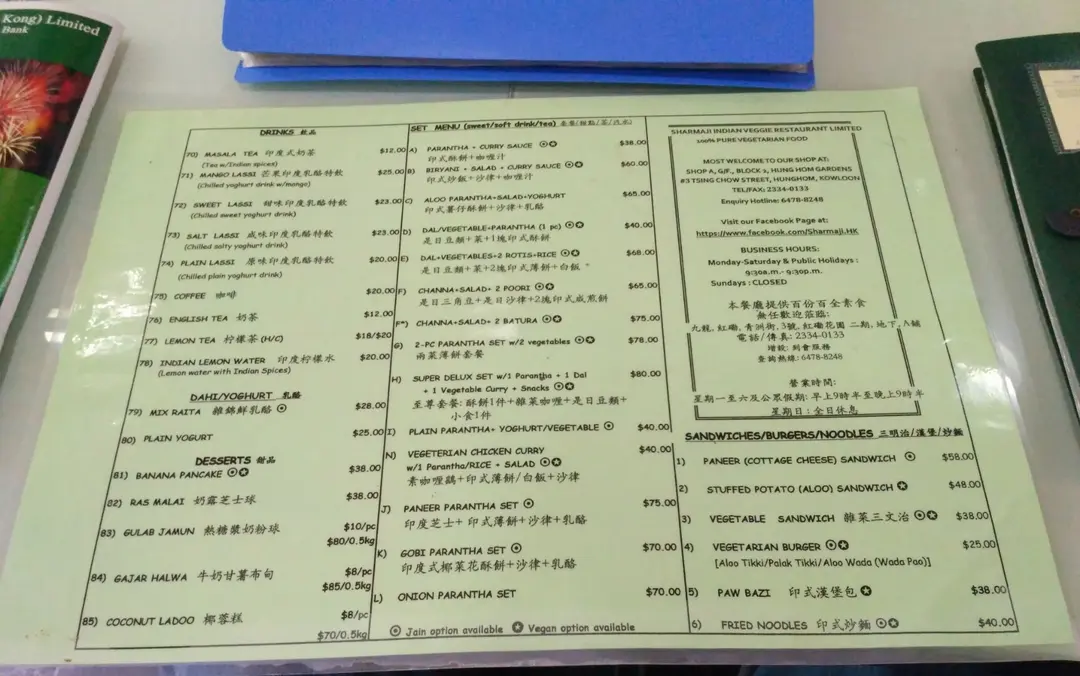 Kong) Limited
Bank
DRINKS 飲品
70) MASALA TEA 印度式奶茶 $12.00
(Tea w/Indian spices)
71) MANGO LASSI 芒果印度乳酪特飲 $25.00
(Chilled yoghurt drink w/mango)
72) SWEET LASSI 甜味印度乳酪特飲 $23.00
(Chilled sweet yoghurt drink)
73) SALT LASSI 咸味印度乳酪特飲 $23.00
(Chilled salty yoghurt drink)
74) PLAIN LASSI 原味印度乳酪特飲 $20.00
(Chilled plain yoghurt drink)
75) COFFEE 咖啡 $20.00
76) ENGLISH TEA 奶茶 $12.00
77) LEMON TEA 柠檬茶 (H/C) $18/$20
78) INDIAN LEMON WATER 印度柠檬水 $20.00
(Lemon water with Indian Spices)
DAHI/YOGHURT 乳酪
79) MIX RAITA 雜錦鮮乳酪 $28.00
80) PLAIN YOGURT $25.00
DESSERTS 甜品
81) BANANA PANCAKE $38.00
82) RAS MALAI 奶露芝士球 $38.00
83) GULAB JAMUN 熱糖漿奶粉球 $10/pc
$80/0.5kg
84) GAJAR HALWA 牛奶甘薯布甸 $8/pc
$85/0.5kg
85) COCONUT LADOO 椰蓉糕 $8/pc
$70/0.5kg
SET MENU (sweet/soft drink/tea) 套餐(甜點/茶/汽水)
A) PARANTHA + CURRY SAUCE $38.00
印式酥餅+咖喱汁
B) BIRYANI + SALAD + CURRY SAUCE $60.00
印式炒飯+沙律+咖喱汁
C) ALOO PARANTHA+SALAD+YOGHURT $65.00
印式薯仔酥餅+沙律+乳酪
D) DAL/VEGETABLE+PARANTHA (1 pc) $40.00
是日豆類+菜+1塊印式酥餅
E) DAL+VEGETABLES+2 ROTIS+RICE $68.00
是日豆類+菜+2塊印式薄餅+白飯
F) CHANNA+SALAD+ 2 POORI $65.00
是日三角豆+是日沙律+2塊印式咸煎餅
F*) CHANNA+SALAD+ 2 BATURA $75.00
G) 2-PC PARANTHA SET w/2 vegetables $78.00
兩菜薄餅套餐
H) SUPER DELUX SET w/1 Parantha + 1 Dal $80.00
+ 1 Vegetable Curry + Snacks
至尊套餐: 酥餅1件+雜菜咖喱+是日豆類+
小食1件
I) PLAIN PARANTHA+ YOGHURT/VEGETABLE $40.00
N) VEGETERIAN CHICKEN CURRY $40.00
w/1 Parantha/RICE + SALAD
素咖喱鷄+印式薄餅/白飯+沙律
J) PANEER PARANTHA SET $75.00
印度芝士+印式薄餅+沙律+乳酪
K) GOBI PARANTHA SET $70.00
印度式椰菜花酥餅+沙律+乳酪
L) ONION PARANTHA SET $70.00
Jain option available Vegan option available
SHARMAJI INDIAN VEGGIE RESTAURANT LIMITED
100% PURE VEGETARIAN FOOD
MOST WELCOME TO OUR SHOP AT:
SHOP A, G/F., BLOCK 2, HUNG HOM GARDENS
#3 TSING CHOW STREET, HUNGHOM, KOWLOON
TEL/FAX: 2334-0133
Enquiry Hotline: 6478-8248
Visit our Facebook Page at:
https://www.facebook.com/Sharmaji.HK
BUSINESS HOURS:
Monday-Saturday & Public Holidays :
9:30a.m.- 9:30p.m.
Sundays : CLOSED
本餐廳提供百份百全素食
無任歡迎莅臨:
九龍, 紅磡, 青洲街, 3號, 紅磡花園 二期, 地下, A舖
電話/傳真: 2334-0133
增設: 到會服務
查詢熱線: 6478-8248
營業時間:
星期一至六及公眾假期: 早上9時半至晚上9時半
星期日: 全日休息
SANDWICHES/BURGERS/NOODLES 三明治/漢堡/炒麵
1) PANEER (COTTAGE CHEESE) SANDWICH $58.00
2) STUFFED POTATO (ALOO) SANDWICH $48.00
3) VEGETABLE SANDWICH 雜菜三文治 $38.00
4) VEGETARIAN BURGER $25.00
[Aloo Tikki/Palak Tikki/Aloo Wada (Wada Pao)]
5) PAW BAZI 印式漢堡包 $38.00
6) FRIED NOODLES 印式炒麵 $40.00